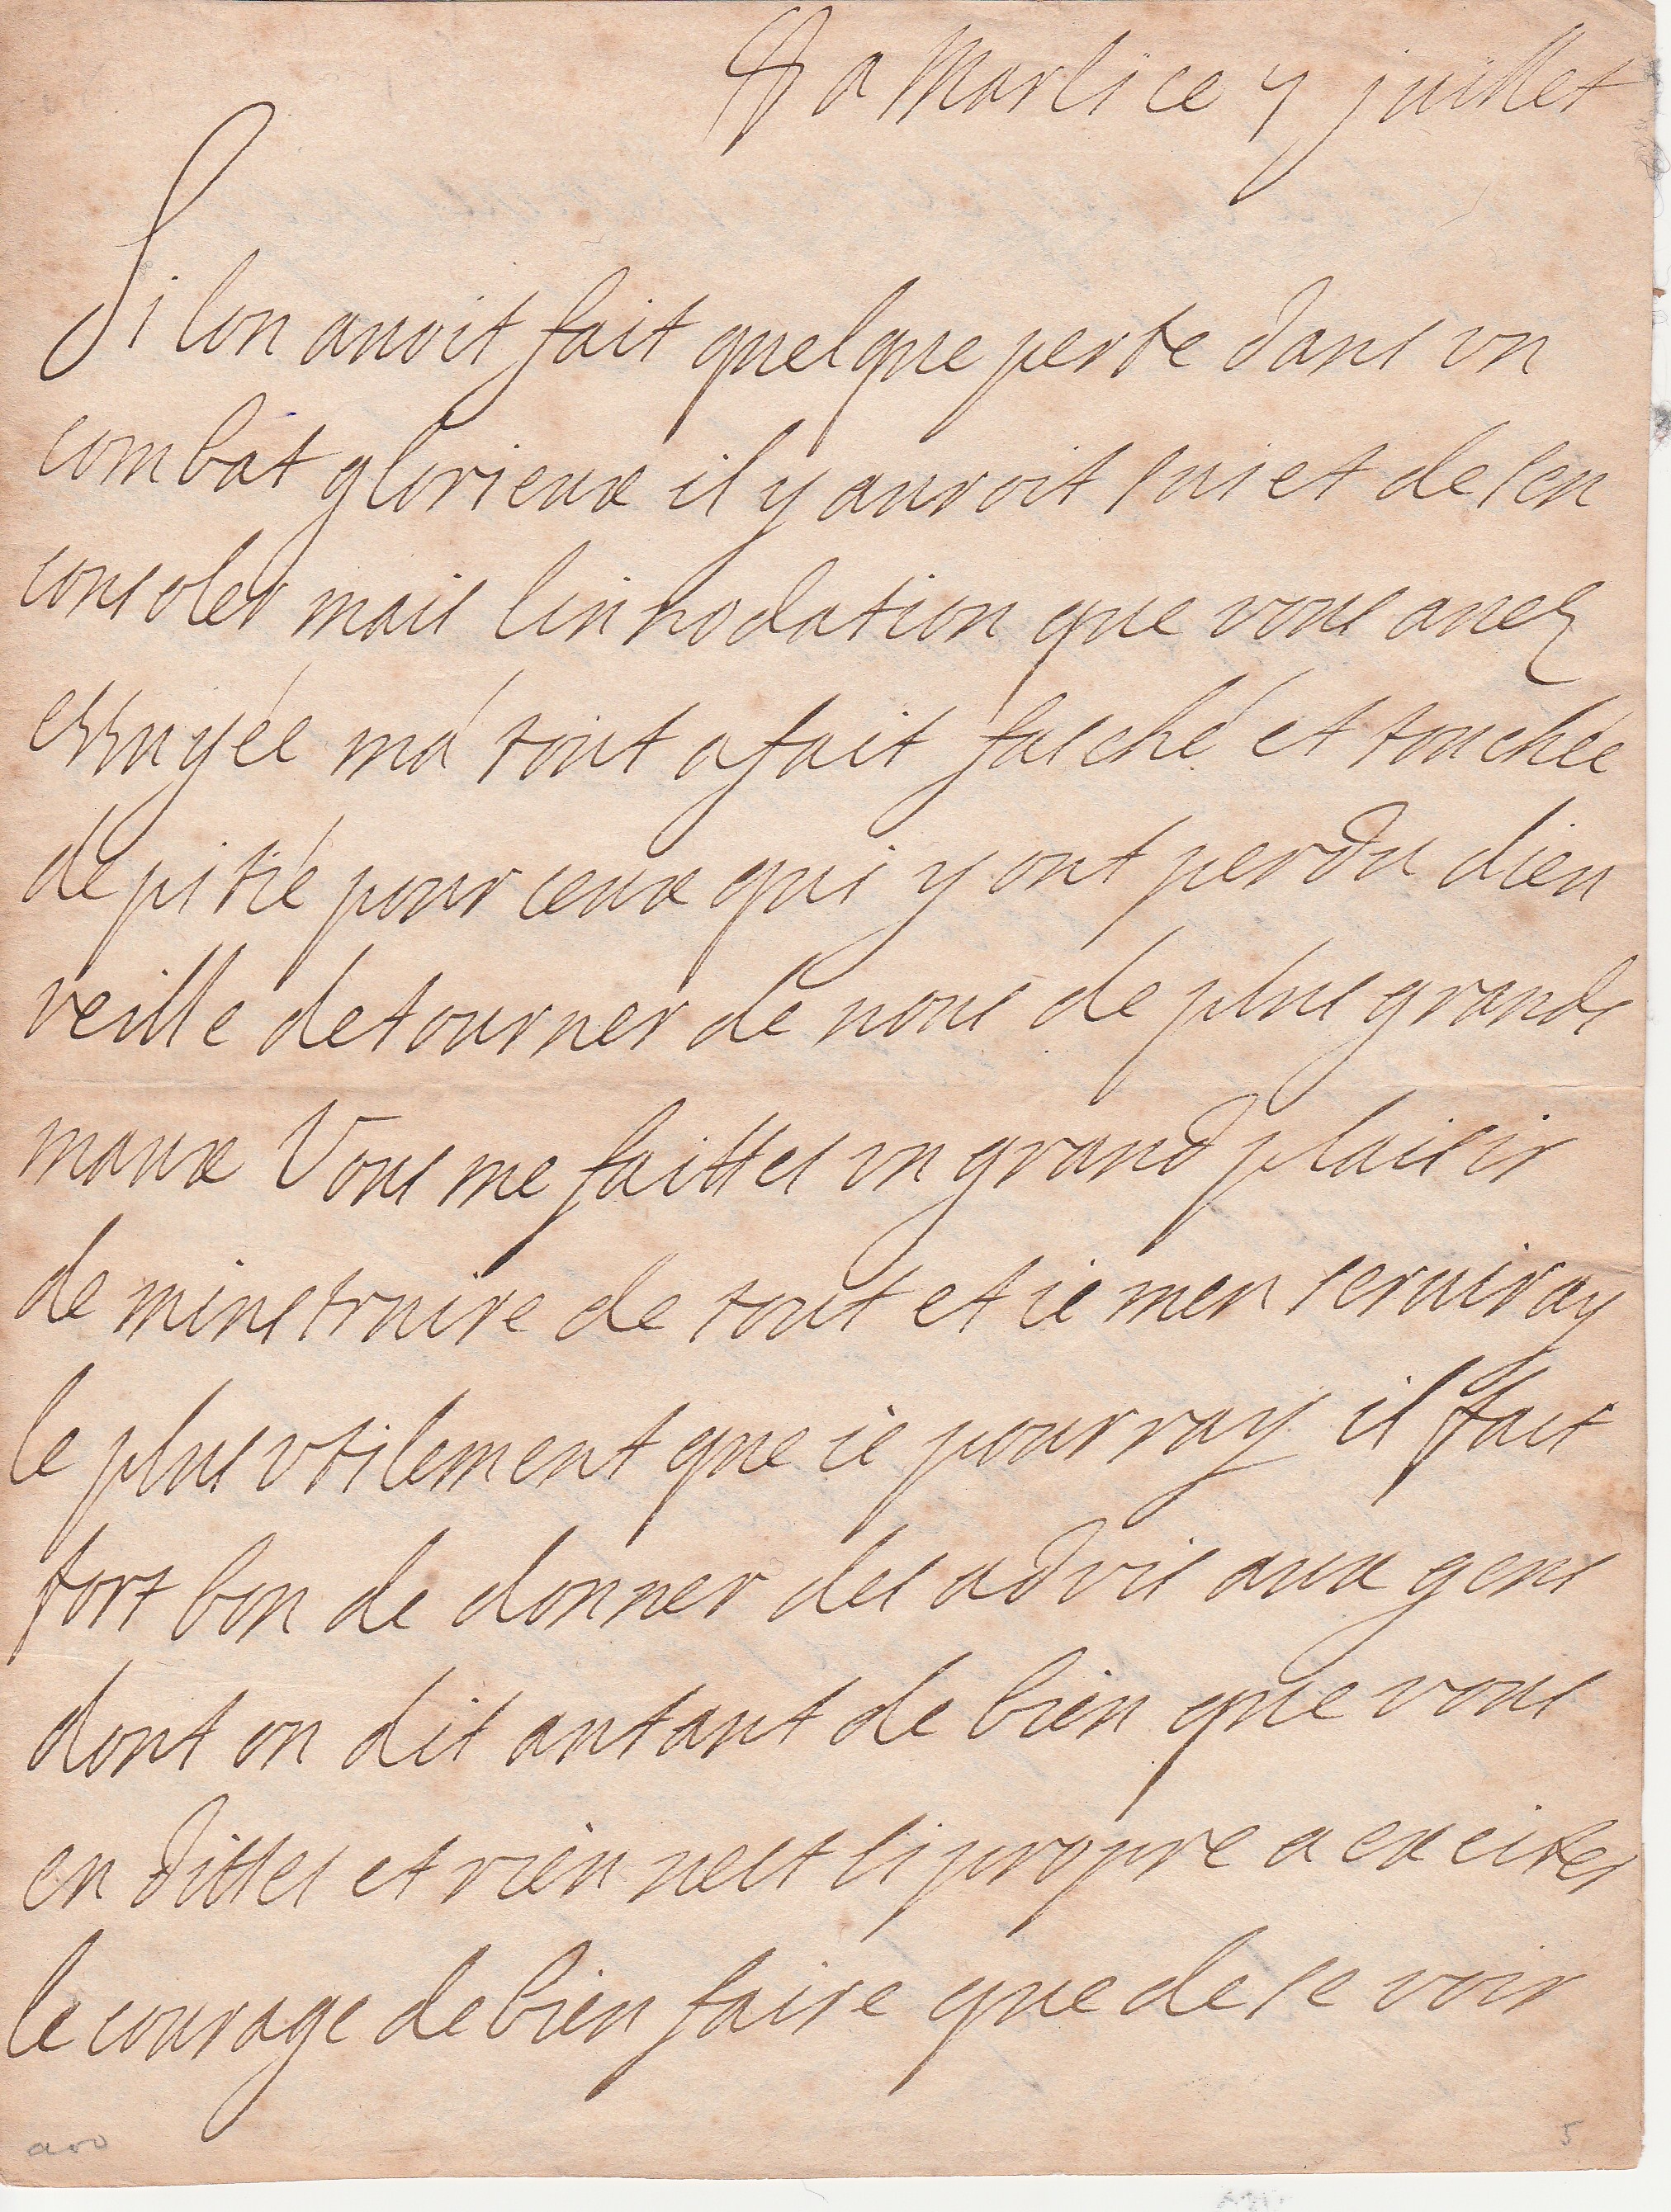 a Marli ce 7 juillet
Si lon auoit fait quelque perte dans vn
combat glorieux il y auroit suiet de sen
consoler mais linnodation que vous auez
essuyée má tout a fait fasché et touchée
de pitié pour ceux qui y ont perdu dieu
veille detourner de nous de plus grands
maux Vous me faittes vn grand plaisir
de minstruire de tout et ie men seruiray
le plus vtilement que ie pourray il fait
fort bon de donner des advis aux gens
dont on dit autant de bien que vous
en dittes et rien nest si propre a exciter
le courage de bien faire que de se voir
5